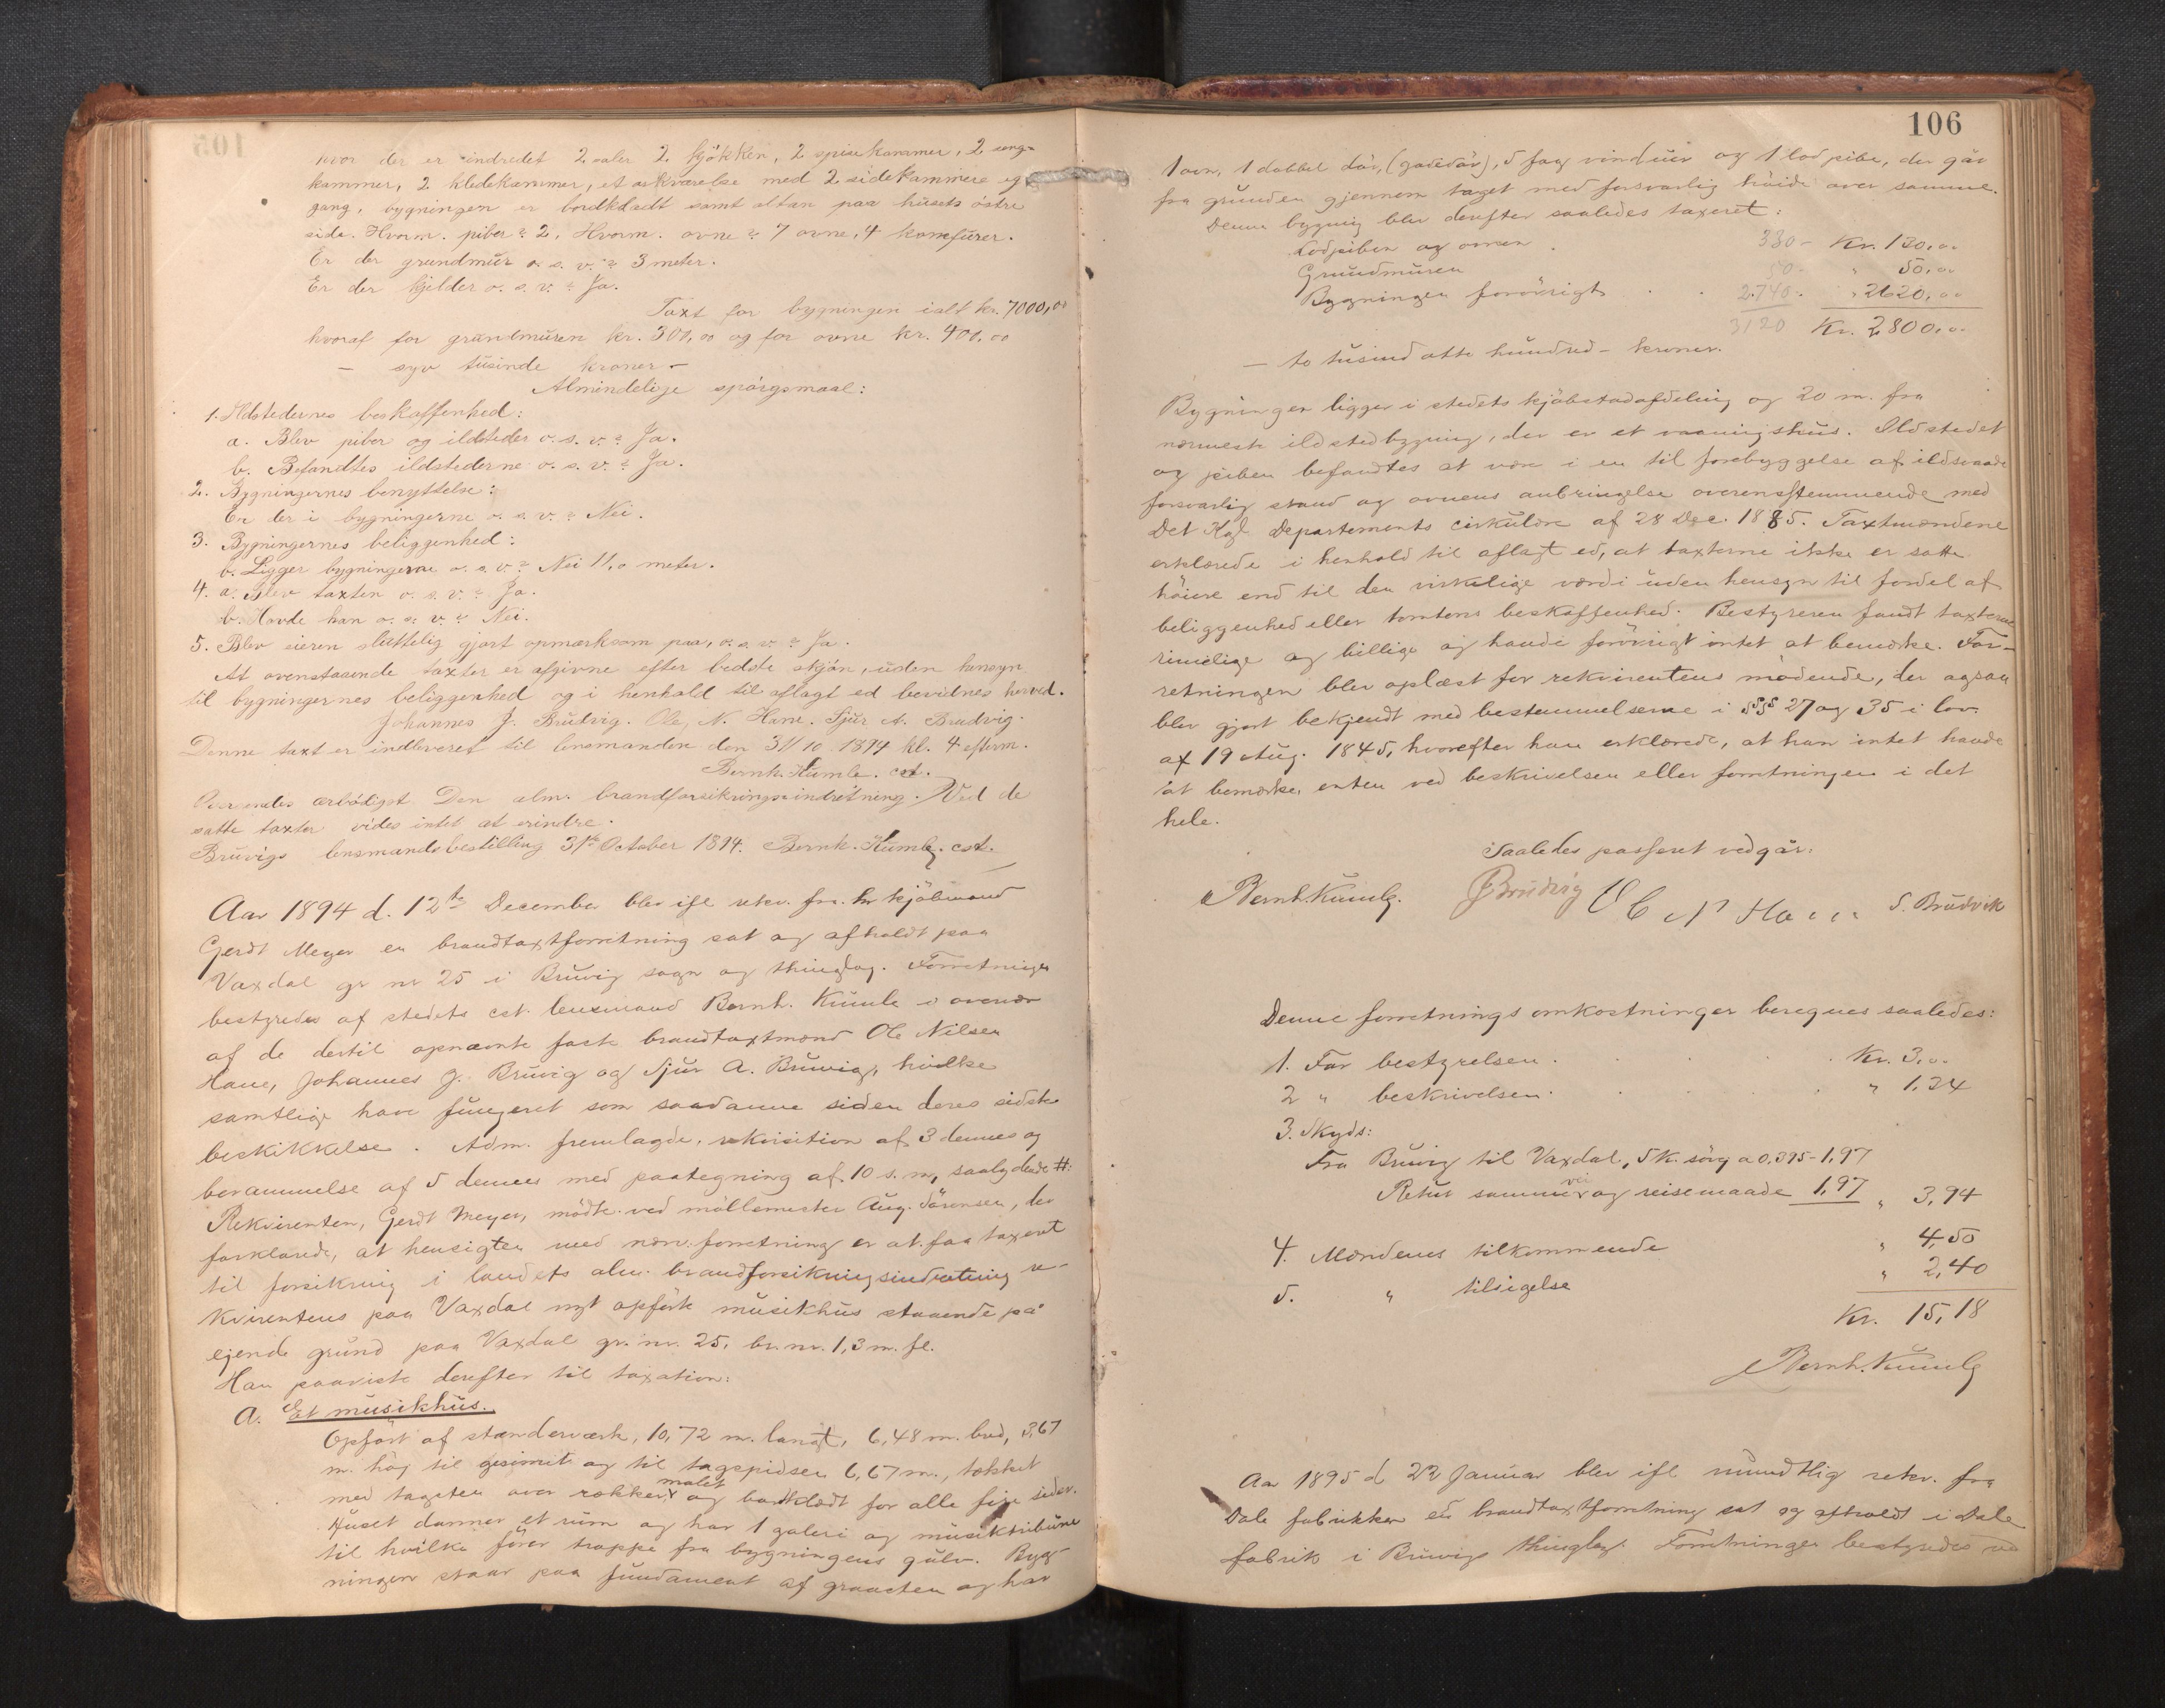 hvor der er indredet 2 saler 2 kjøkken, 2 spisekammer, 2 senge
kammer, 2 kledekammer, et arkværelse med 2 sidekammere og
gang, bygningen er bordkladt samt altan paa husets østre
side. Hvorm. piber? 2. Hvorm. ovne? 7 ovne, 4 komfurer.
Er der grundmur o. s. v.? 3 meter.
Er der kjelder o. s. v.? Ja.
Taxt for bygningen ialt kr. 7000,00
hvoraf for grundmuren kr. 300,00 og for ovne kr. 400,00
— syv tusinde kroner —
Almindelige spørgsmaal:
1. Ildstedernes beskaffenhed:
a. Blev piber og ildsteder o. s. v.? Ja.
b. Befandtes ildstederne o. s. v.? Ja.
2. Bygningernes benyttelse:
Er der i bygningerne o. s. v.? Nei.
3. Bygningernes beliggenhed:
b. Ligger bygningerne o. s. v.? Nei 11,0 meter.
4. a. Blev taxten o. s. v.? Ja.
b. Havde han o. s. v.? Nei.
5. Blev eieren sluttelig gjort opmærksom paa, o. s. v.? Ja.
At ovenstaaende taxter er afgivne efter bedste skjøn, uden hensyn
til bygningernes beliggenhed og i henhold til aflagt ed bevidnes herved.
Johannes J. Brudvig. Ole N. Hane. Sjur A. Brudvig.
Denne taxt er indleveret til lensmanden den 31/10 1894 kl. 4 efterm.
Bernh. Kumle. cst.
Oversendes ærbødigst Den alm. brandforsikringsindretning. Ved de
satte taxter vides intet at erindre.
Bruvigs lensmandsbestilling 31te October 1894. Bernh. Kumle. cst.
Aar 1894 d. 12te December blev ifl rekv. fra hr kjøbmand
Gerdt Meyer en brandtaxtforretning sat og afholdt paa
Vaxdal gr nr 25 i Bruvig sogn og thinglag. Forretningen
bestyredes af stedets cst. lensmand Bernh. Kumle i overvær
af de dertil opnævnte faste brandtaxtmænd Ole Nilsen
Hane, Johannes J. Bruvig og Sjur A. Bruvig, hvilke
samtlige have fungeret som saadanne siden deres sidste
beskikkelse. Adm. fremlagde rekvisition af 3 dennes og
berammelse af 5 dennes med paategning af 10 s. m, saalydende #:
Rekvirenten, Gerdt Meyer, mødte ved møllemester Aug. Sørensen, der
forklarede, at hensigten med nærv. forretning er at faa taxeret
til forsikring i landets alm. brandforsikringsindretning re-
kvirentens paa Vaxdal nyt opførte musikhus staaende på
ejende grund paa Vaxdal gr. nr. 25, br. nr. 1, 3 m. fl.
Han paaviste derefter til taxation:
A. Et musikhus.
Opført af stænderværk, 10,72 m. langt, 6,48 m. bred, 3,67
m. høj til gesimset og til tagspidsen 6,67 m., tækket
med tagsten over rækker, malet og bordklædt for alle fire sider.
Huset danner et rum og har 1 galeri og musiktribüne
til hvilke fører trappe fra bygningens gulv. Byg-
ningen staar paa fundament af graasten og har
106
1 ovn, 1 dobbel dør, (gadedør), 5 fag vinduer og 1 lodpibe, der går
fra grunden gjennem taget med forsvarlig høide over samme.
Denne bygning blev derefter saaledes taxeret:
Lodpiben og ovnen . 330 – Kr. 130,00
Grundmuren 50 - " 50,00
Bygningen forøvrigt . . 2740. " 2620,00
3120 Kr. 2800,00
— to tusind otte hundred — kroner.
Bygningen ligger i stedets kjøbstadafdeling og 20 m. fra
nærmeste ildstedbygning, der er et vaaningshus. Ildstedet
og piben befandtes at være i en til forebyggelse af ildsvaade
forsvarlig stand og ovnens anbringelse overensstemmende med
Det Kgl. Departements cirkulære af 28 Dec. 1885. Taxtmændene
erklærede i henhold til aflagt ed, at taxterne ikke er satte
høiere end til den virkelige værdi uden hensyn til fordel af
beliggenhed eller tomtens beskaffenhed. Bestyreren fandt taxterne
rimelige og billige og havde forøvrigt intet at bemærke. For-
retningen blev oplæst for rekvirentens mødende, der ogsaa
blev gjort bekjendt med bestemmelserne i §§§ 27 og 35 i lov
af 19 Aug. 1845, hvorefter han erklærede, at han intet havde
at bemærke, enten ved beskrivelsen eller forretningen i det
hele.
Saaledes passeret vedgår:
Bernh. Kumle. J Brudvig Ole N Hane S. Brudvik
Denne forretnings omkostninger beregnes saaledes:
1. For bestyrelsen . . . . Kr. 3,00
2 " beskrivelsen . . . " 1,34
3. Skyds:
Fra Bruvig til Vaxdal, 5 K. søvg a 0,395 - 1,97
Retur samme vei og reisemaade 1,97 " 3,94
4. Mændenes tilkommende " 4,50
5. " tilsigelse " 2,40
Kr. 15,18
Bernh. Kumle
Aar 1895 d 22 Januar blev ifl mundtlig rekv. fra
Dale fabrikker en brandtaxtforretning sat og afholdt i Dale
fabrik i Bruvigs thinglag. Forretningen bestyredes